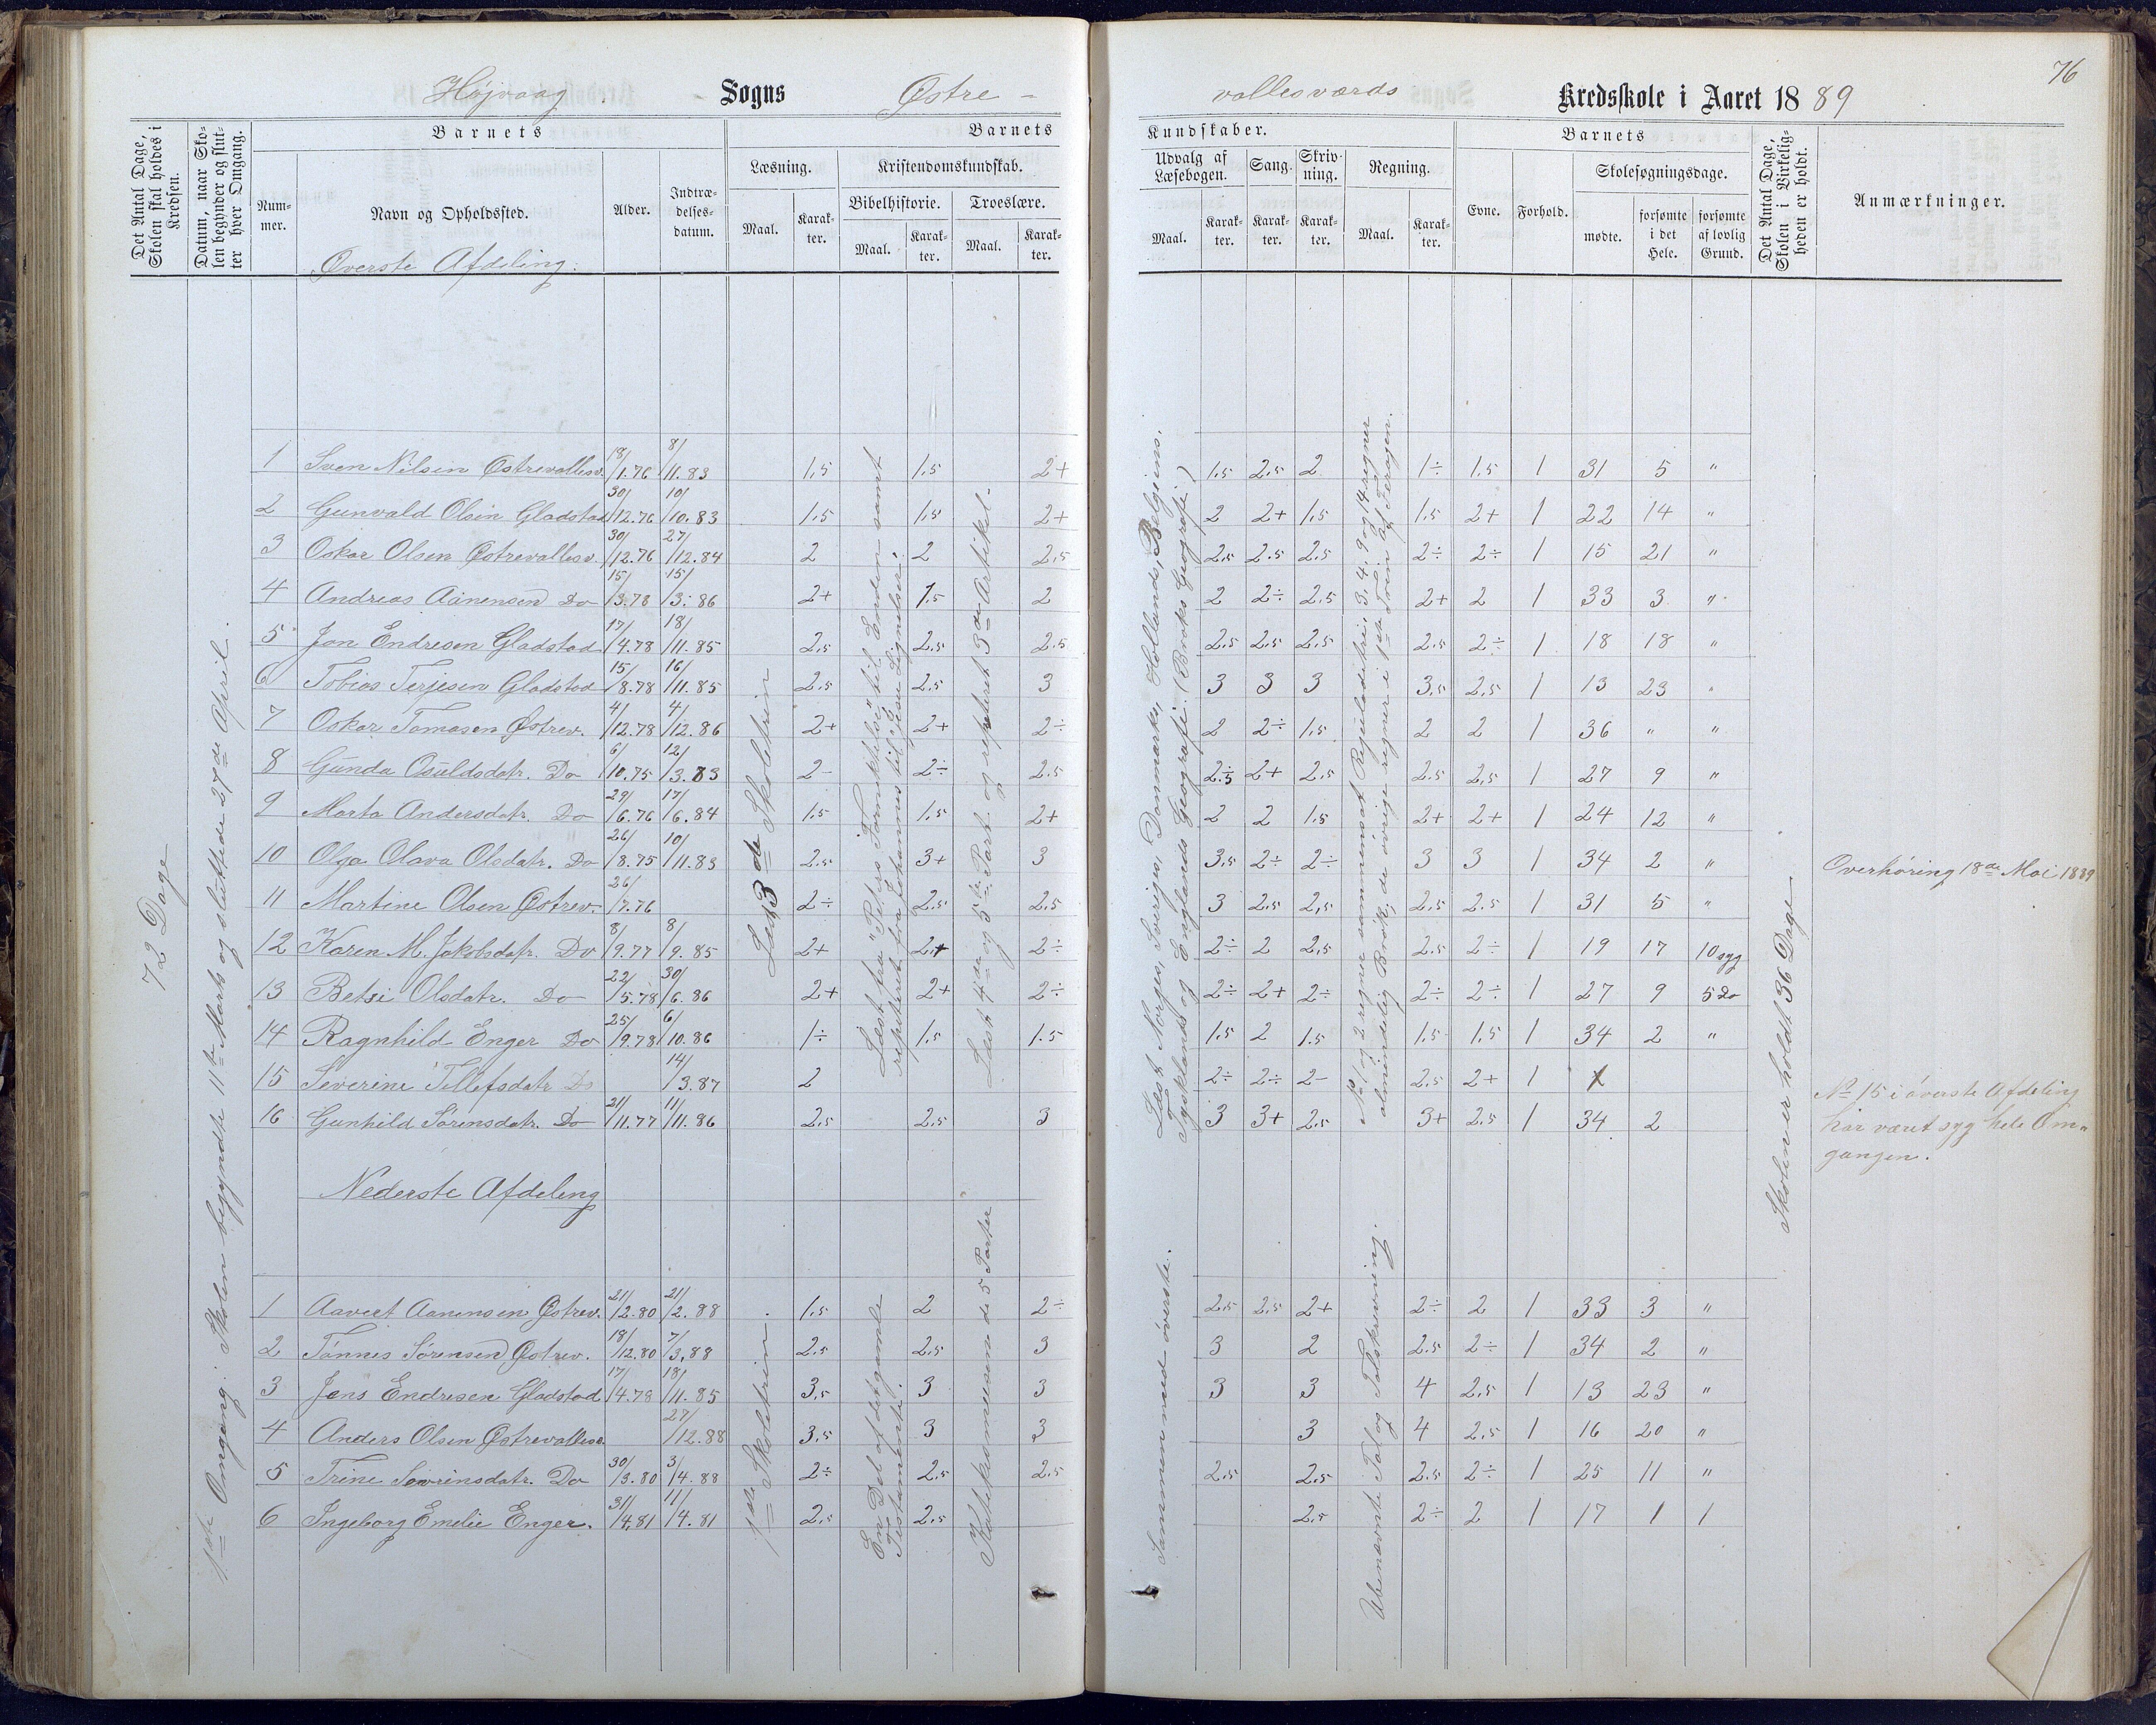 76
Højvaag - Sogns Østre -
vallesværds Kredsskole i Aaret 1889
Det Antal Dage, Skolen skal holdes i Kredsen.
Datum, naar Skolen begynder og slutter hver Omgang.
Barnets
Nummer.
Navn og Opholdssted.
Alder.
Indtrædelses-datum.
Barnets
Læsning.
Maal.
Karakter.
Kristendomskundskab.
Bibelhistorie.
Maal.
Karakter.
Troeslære.
Maal.
Karakter.
Kundskaber.
Udvalg af Læsebogen.
Maal.
Karakter.
Sang.
Karakter.
Skrivning.
Karakter.
Regning.
Maal.
Karakter.
Barnets
Evne.
Forhold.
Skolesøgningsdage.
mødte.
forsømte i det Hele.
forsømte af lovlig Grund.
Det Antal Dage, Skolen i Virkeligheden er holdt.
Anmærkninger.
Øverste Afdeling.
72 Dage
1ste Omgang. Skolen begyndte 11te Marts og sluttede 27de April.
Læst 3de Skoletrin
Læst fra "Petrus Fornektelse" til Enden samt repeteret fra Johannes til Jesu Lignelser.
Læst 4de og 5te Part og repeteret 3die Artikel.
Læst Norges, Sveriges, Danmarks, Hollands, Belgiens,
Tysklands og Englands Geografi. (Broks Geografi)
No 1 og 2 regner sammensat Reguladetri, 3, 4, 9 og 14 regner
almindelig Brøk, de øvrige regner i 1ste Trin af Teragen.
Skolen er holdt 36 Dage
1 Sven Nilsen Østrevallesv. 18/1.76 8/11.83 1,5 1,5 2+ 1,5 2,5 2 1÷ 1,5 1 31 5 "
2 Gunvald Olsen Gladstad 30/12.76 10/10.83 1,5 1,5 2+ 2 2+ 1,5 1,5 2+ 1 22 14 "
3 Oskar Olsen Østrevallesv. 30/12.76 27/12.84 2 2 2,5 2,5 2,5 2,5 2÷ 2÷ 1 15 21 "
4 Andreas Aanensen Do 15/3.78 15/3.86 2+ 1,5 2 2 2÷ 2,5 2+ 2 1 33 3 "
5 Jon Endresen Gladstad 17/4.78 18/11.85 2,5 2,5 2,5 2,5 2,5 2,5 2,5 2÷ 1 18 18 "
6 Tobias Terjesen Gladstad 15/8.78 16/11.85 2,5 2,5 3 3 3 3 3,5 2,5 1 13 23 "
7 Oskar Tomasen Østrev. 4/12.78 4/12.86 2+ 2+ 2÷ 2 2÷ 1,5 2 2 1 36 " "
8 Gunda Osuldsdatr. Do 6/10.75 12/3.83 2- 2÷ 2,5 2÷5 2+ 2,5 2,5 2,5 1 27 9 "
9 Marta Andersdatr. Do 29/6.76 17/6.84 1,5 1,5 2+ 2 2 1,5 2+ 2+ 1 24 12 "
10 Olga Olava Olsdatr. Do 26/8.75 10/11.83 2,5 3+ 3 3,5 2÷ 2÷ 3 3 1 34 2 " Overhøring 18de Mai 1889
11 Martine Olsen Østrev. 26/7.76 2÷ 2,5 2,5 3 2,5 2,5 2,5 2,5 1 31 5 "
12 Karen M. Jakobsdatr. Do 8/9.77 8/9.85 2+ 2+ 2÷ 2÷ 2 2,5 2,5 2÷ 1 19 17 10 syg
13 Betsi Olsdatr. Do 22/5.78 30/6.86 2+ 2+ 2÷ 2÷ 2+ 2÷ 2÷ 2÷ 1 27 9 5 Do
14 Ragnhild Enger Do 25/9.78 6/10.86 1÷ 1,5 1.5 1,5 2 1,5 1,5 1,5 1 34 2 "
15 Severine Tellefsdatr Do 14/3.87 2 2÷ 2÷ 2- 2,5 2+ 1
16 Gunhild Sörensdatr. Do 21/11.77 11/11.86 2,5 2,5 3 3 3+ 2,5 3+ 2,5 1 34 2
No 15 i øverste Afdeling
har været syg hele Om-
gangen.
Nederste Afdeling
1ste Skoletrin.
En Del af det gamle Testamente.
Katekismusens de 5 Parter
Sammen med øverste.
Ubenævnte Tal og Talskrivning.
1 Aavert Aanensen Østrev. 21/2.80 21/2.88 1,5 2 2÷ 2,5 2,5 2+ 2÷ 2 1 33 3 "
2 Tönnes Sörensen Østrev. 18/12.80 7/3.88 2,5 2,5 3 3 2 2,5 2÷ 1 34 2 "
3 Jens Endresen Gladstad 17/4.78 18/11.85 3,5 3 3 3 3 4 2,5 1 13 23 "
4 Anders Olsen Østrevallesv. 27/12.88 3,5 3 3 3 4 2,5 1 16 20 "
5 Trine Sevrinsdatr. Do 30/3.80 3/4.88 2÷ 2,5 2,5 2,5 2,5 2,5 2÷ 1 25 11 "
6 Ingeborg Emelie Enger. 31/4.81 11/4.81 2,5 2,5 2,5 2÷ 2 1 17 1 1